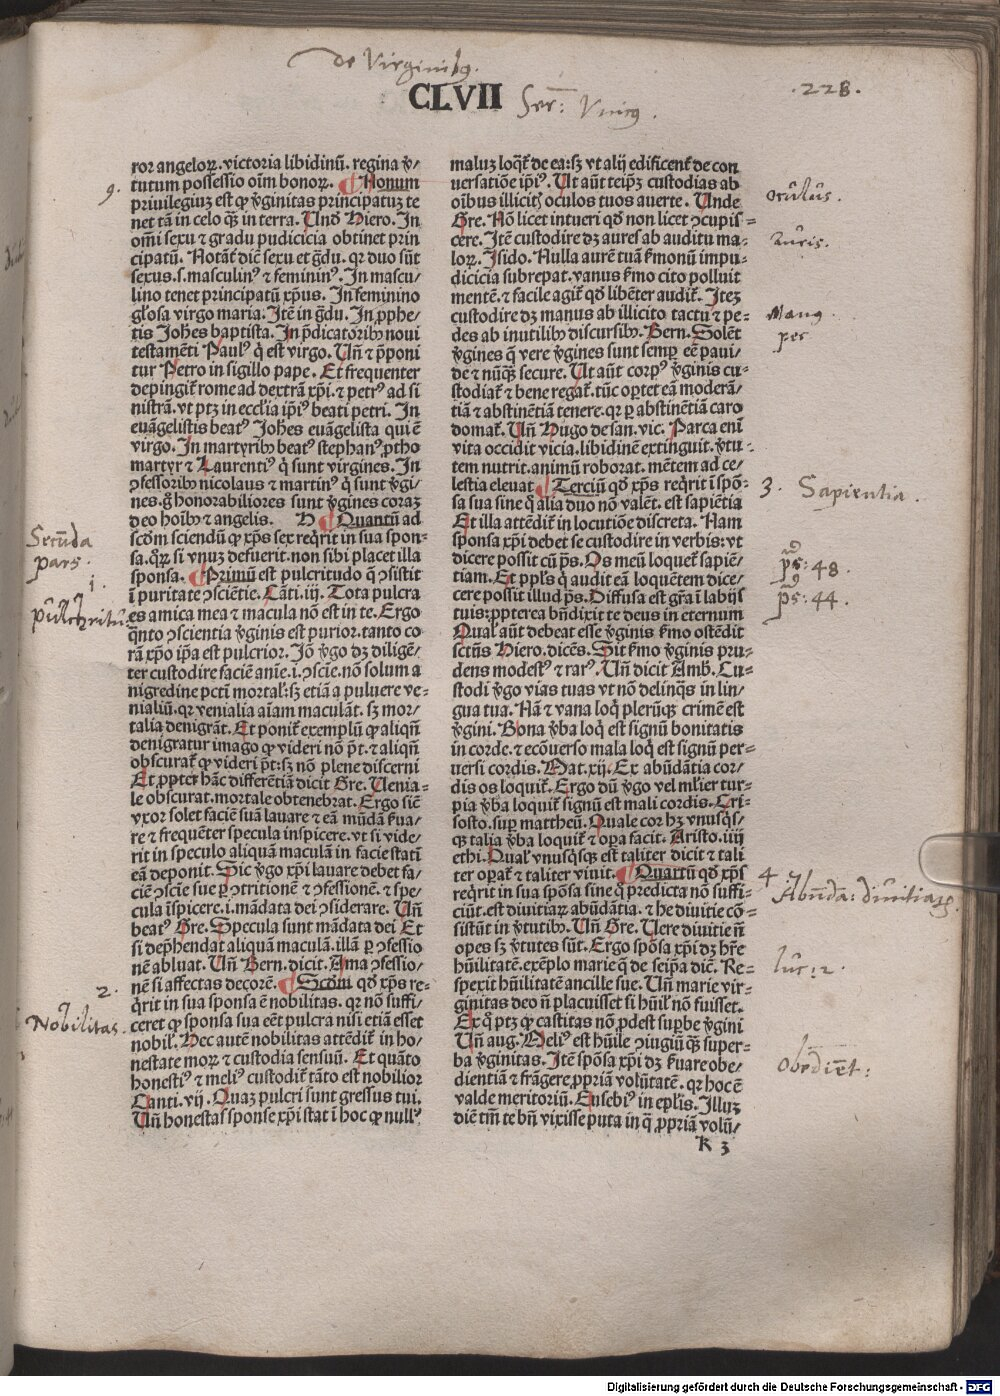 de Virginibꝰ.
CLVII Ser̄: Vnicꝰ.
.228.
ror angeloꝝ. victoria libidinũ. regina ꝟ/
tutum possessio oĩm bonoꝝ. ¶ Nonum
9.
priuilegiuꝫ est ꝙ ꝟginitas principatuꝫ te
net tã in celo qꝫ̃ in terra. Unď Hiero. In
om̃i sexu ⁊ gradu pudicicia obtinet prin
cipatũ. Notãť diẽ sexu et gr̃du. qꝛ duo sũt
sexus. s. masculinꝰ ⁊ femininꝰ. In mascu/
lino tenet principatũ xp̃us. In feminino
gl̓osa virgo maria. Itẽ in gr̃du. In ꝓphe/
tis Joh̃es baptista. In p̃dicatoribꝫ noui
testamẽti Paulꝰ q̇ est virgo. Uñ ⁊ p̃poni
tur Petro in sigillo pape. Et frequenter
depingiť rome ad dextrã xp̃i. ⁊ petrꝰ ad si
nistrã. vt ptꝫ in eccl̓ia ip̃iꝰ beati petri. In
euãgelistis beatꝰ Joh̃es euãgelista qui ẽ
virgo. In martyribꝫ beatꝰ stephanꝰ ꝓtho
martyr ⁊ Laurentiꝰ q̇ sunt virgines. In
ꝯfessoribꝫ nicolaus ⁊ martinꝰ q̇ sunt ꝟgi/
nes. g̊ honorabiliores sunt ꝟgines coraꝫ
deo hoĩbꝫ ⁊ angelis. H ¶ Quantũ ad
Secũda
pars.
scďm sciendũ ꝙ xp̃s sex req̇rit in sua spon/
sa. qꝝ si vnuꝫ defuerit. non sibi placet illa
sponsa. ¶ Primũ est pulcritudo q̃ ꝯsistit
1.
Pulchritu:
ĩ puritate ꝯsciẽtie. Cãti. iij. Tota pulcra
es amica mea ⁊ macula nõ est in te. Ergo
q̃nto ꝯscientia ꝟginis est purior. tanto co-
rã xp̃o ip̃a est pulcrior. Jõ ꝟgo dꝫ diligẽ/
ter custodire faciẽ anĩe. i. ꝯsciẽ. nõ solum a
nigredine pctĩ mortal̓. sꝫ etiã a puluere ve-
nialiũ. qꝛ venialia aĩam maculãt. sꝫ mor/
talia denigrãt. Et poniť exemplũ ꝙ aliqñ
denigratur imago ꝙ videri nõ p̃t. ⁊ aliqñ
obscurať ꝙ videri p̃t. sꝫ nõ plene discerni
Et ꝓpter hãc differẽtiã dicit Gre. Uenia-
le obscurat. mortale obtenebrat. Ergo siẽ
vxor solet faciẽ suã lauare ⁊ eã mũdã ẜua/
re ⁊ frequẽter specula inspicere. vt si vide/
rit in speculo aliquam maculã in facie statĩ
eã deponit. Sic ꝟgo xp̃i lauare debet fa/
ciẽ ꝯsciẽ sue ꝑ ꝯtritionẽ ⁊ ꝯfessionẽ. ⁊ spe/
cula ĩspicere. i. mãdata dei ꝯsiderare. Uñ
beatꝰ Gre. Specula sunt mãdata dei Et
si dep̃hendat aliquam maculã. illã ꝑ ꝯfessio
nẽ abluat. Uñ Bern. dicit. Ama ꝯfessio/
nẽ si affectas decorẽ. ¶ Scďm qď xp̃s re-
2.
Nobilitas.
q̇rit in sua sponsa ẽ nobilitas. qꝛ nõ suffi/
ceret ꝙ sponsa sua eẽt pulcra nisi etiã esset
nobil̓. Hec autẽ nobilitas attẽdiť in ho/
nestate moꝝ ⁊ custodia sensuũ. Et quãto
honestiꝰ ⁊ meliꝰ custodiť tãto est nobilior
Canti. vij. Quaꝫ pulcri sunt gressus tui.
Uñ honestas sponse xp̃i stat ĩ hoc ꝙ nullꝰ
maluꝫ loq̇ť de ea: sꝫ vt alij edificent̃ de con
uersatiõe ip̃iꝰ. Ut aũt teip̃ꝫ custodias ab
oĩbus illicitꝭ oculos tuos auerte. Unde
oculus.
Gre. Nõ licet intueri qď non licet ꝯcupis-
cere. Itẽ custodire dꝫ aures ab auditu ma-
Auris.
loꝝ. Isido. Nulla aurẽ tuã ẜmonũ impu/
dicicia subrepat. vanus ẜmo cito polluit
mentẽ. ⁊ facile agiť qď libẽter audiť. Iteꝫ
custodire dꝫ manus ab illicito tactu ⁊ pe-
Manꝰ.
pes
des ab inutilibꝫ discursibꝫ. Bern. Solẽt
ꝟgines q̃ vere ꝟgines sunt semꝑ eẽ paui/
de ⁊ nũqꝫ̃ secure. Ut aũt corpꝰ ꝟginis cu-
stodiať ⁊ bene regať. tũc oportet eã moderã/
tiã ⁊ abstinẽtiã tenere. qꝛ ꝑ abstinẽtiã caro
domať. Uñ Hugo de san. vic. Parca enĩ
vita occidit vicia. libidinẽ extinguit. ꝟtu-
tem nutrit. animũ roborat. mẽtem ad ce/
lestia eleuat ¶ Terciũ qď xp̃s req̇rit ĩ spõ-
3. Sapientia.
sa sua sine q̃ alia duo nõ valẽt. est sapiẽtia
Et illa attẽdiť in locutiõe discreta. Nam
sponsa xp̃i debet se custodire in verbis: vt
dicere possit cũ p̃s. Os meũ loqueť sapiẽ/
ps: 48.
tiam. Et ppl̓s q̇ audit eã loquẽtem dice/
cere possit illud p̃s. Diffusa est gr̃a ĩ labijs
ps: 44.
tuis: ꝓpterea bñdixit te deus in eternum
Qual̓ aũt debeat esse ꝟginis ẜmo ostẽdit
sctũs Hiero. dicẽs. Sit ẜmo ꝟginis pru/
dens modestꝰ ⁊ rarꝰ. Uñ dicit Amb. Cu-
stodi ꝟgo vias tuas vt nõ delinq̃s in lin/
gua tua. Nã ⁊ vana loq̇ plerũqꝫ crimẽ est
ꝟgini. Bona ꝟba loq̇ est signũ bonitatis
in corde. ⁊ ecõuerso mala loq̇ est signũ per-
uersi cordis. Mat. xij. Ex abũdãtia cor/
dis os loquiť. Ergo dũ ꝟgo vel ml̓ier tur-
pia ꝟba loquiť signũ est mali cordis. Cri-
sosto. suꝑ mattheũ. Quale cor hꝫ vnusq̃s/
qꝫ talia ꝟba loquiť ⁊ oꝑa facit. Aristo. iiij
ethi. Qual̓ vnusq̇sqꝫ est taliter dicit ⁊ tali
ter oꝑať ⁊ taliter viuit. ¶ Quartũ qď xp̃s
4
Abũda: diuitiaꝝ.
req̇rit in sua spõsa sine q̊ predicta nõ suffi/
ciũt. est diuitiaꝝ abũdãtia. ⁊ he diuitie cõ-
sistũt in ꝟtutibꝫ. Uñ Gre. Uere diuitie ñ
opes sꝫ ꝟtutes sũt. Ergo spõsa xp̃i dꝫ hr̃e
hũilitatẽ. exẽplo marie q̃ de seip̃a diẽ. Re-
luc: 2.
spexit hũilitatẽ ancille sue. Uñ marie vir-
ginitas deo ñ placuisset si hũil̓ nõ fuisset.
Ex q̊ ptꝫ ꝙ castitas nõ ꝓdest suꝑbe ꝟgini
Uñ aug. Meliꝰ est hũile ꝯiugiũ qꝫ̃ super-
ba ꝟginitas. Itẽ spõsa xp̃i dꝫ ẜuare obe/
Obediẽt:
dientiã ⁊ frãgere ꝓpriã volũtatẽ. qꝛ hoc ẽ
valde meritoriũ. Eusebiꝰ in epl̓is. Illuꝫ
diẽ tm̃ te bñ vixisse puta in q̊ ꝓpriã volũ/
K 3
Digitalisierung gefördert durch die Deutsche Forschungsgemeinschaft - DFG